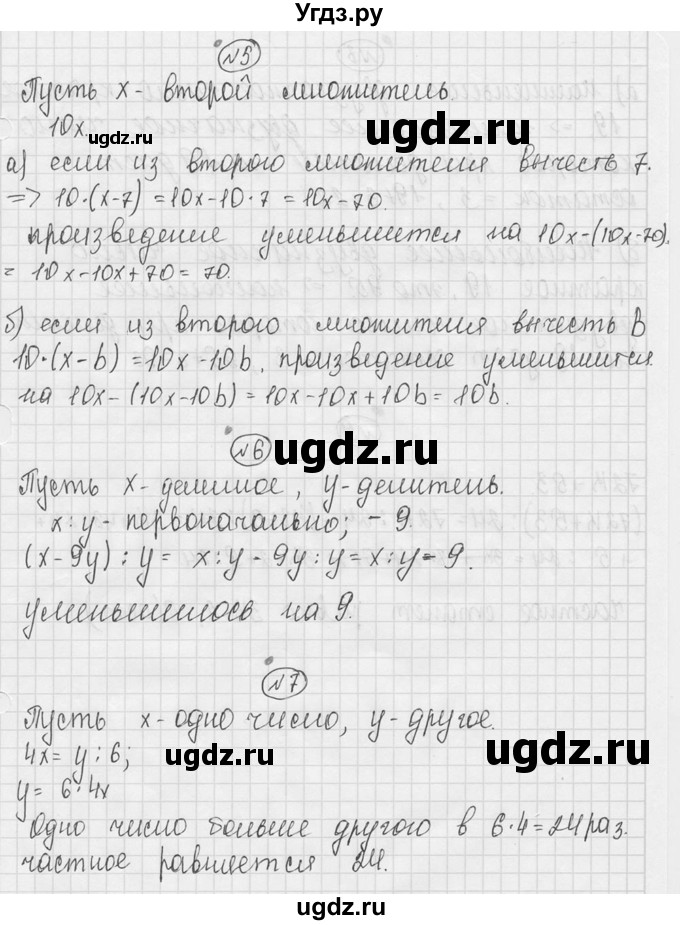 Угдз.ру
№5
Пусть x - второй множитель
10x.
ugdz.ru
ugdz.ru
а) если из второго множителя вычесть 7.
=> 10·(x-7) = 10x-10·7 = 10x-70.
произведение уменьшится на 10x-(10x-70).
= 10x-10x+70 = 70.
б) если из второго множителя вычесть b
10·(x-b) = 10x-10b. произведение уменьшится
ugdz.ru
на 10x-(10x-10b) = 10x-10x+10b = 10b.
№6
ugdz.ru
Пусть x - делимое, y - делитель.
x:y - первоначально; - 9.
ugdz.ru
ugdz.ru
(x-9y):y = x:y - 9y:y = x:y - 9.
уменьшилось на 9.
ugdz.ru
№7
Пусть x - одно число, y - другое.
4x = y:6;
ugdz.ru
ugdz.ru
y = 6·4x
Одно число больше другого в 6·4=24 раз.
частное равняется 24.
ugdz.ru
ugdz.ru